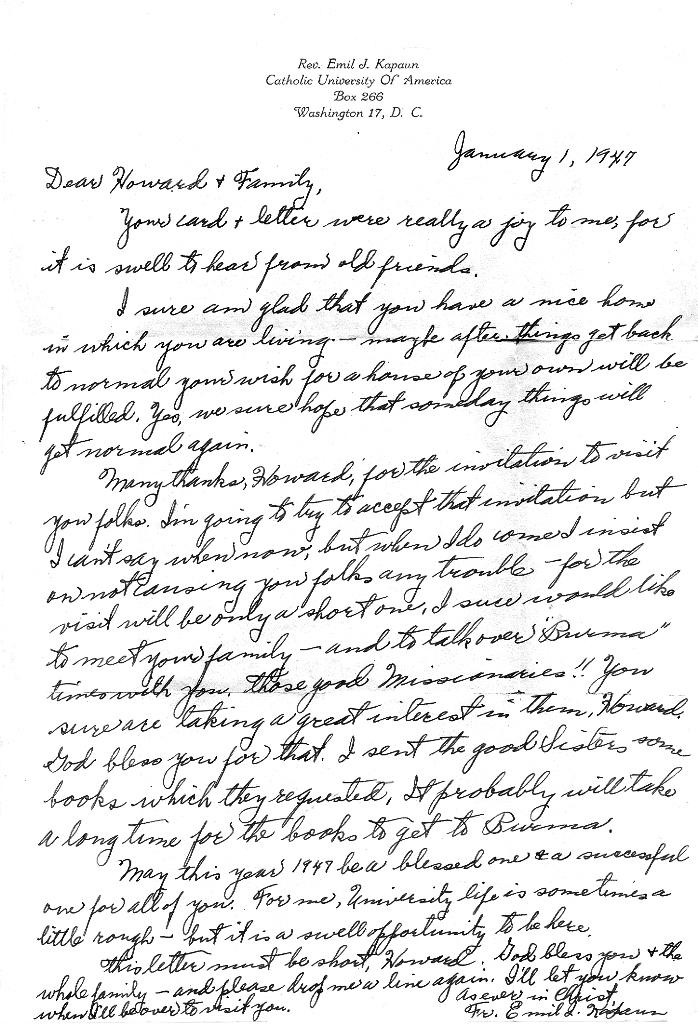 Rev. Emil J. Kapaun
Catholic University Of America
Box 266
Washington 17, D. C.
January 1, 1947
Dear Howard & Family,
Your card & letter were really a joy to me, for
it is swell to hear from old friends.
I sure am glad that you have a nice home
in which you are living — maybe after things get back
to normal your wish for a house of your own will be
fulfilled. Yes, we sure hope that someday things will
get normal again.
Many thanks, Howard, for the invitation to visit
you folks. I'm going to try to accept that invitation but
I can't say when now, but when I do come I insist
on not causing you folks any trouble — for the
visit will be only a short one. I sure would like
to meet your family — and to talk over "Burma"
times with you. Those good Missionaries!! You
sure are taking a great interest in them, Howard.
God bless you for that. I sent the good Sisters some
books which they requested. It probably will take
a long time for the books to get to Burma.
May this year 1947 be a blessed one & a successful
one for all of you. For me, University life is sometimes a
little rough — but it is a swell opportunity to be here.
This letter must be short, Howard. God bless you & the
whole family — and please drop me a line again. I'll let you know
when I'll be over to visit you.
As ever in Christ,
Fr. Emil J. Kapaun